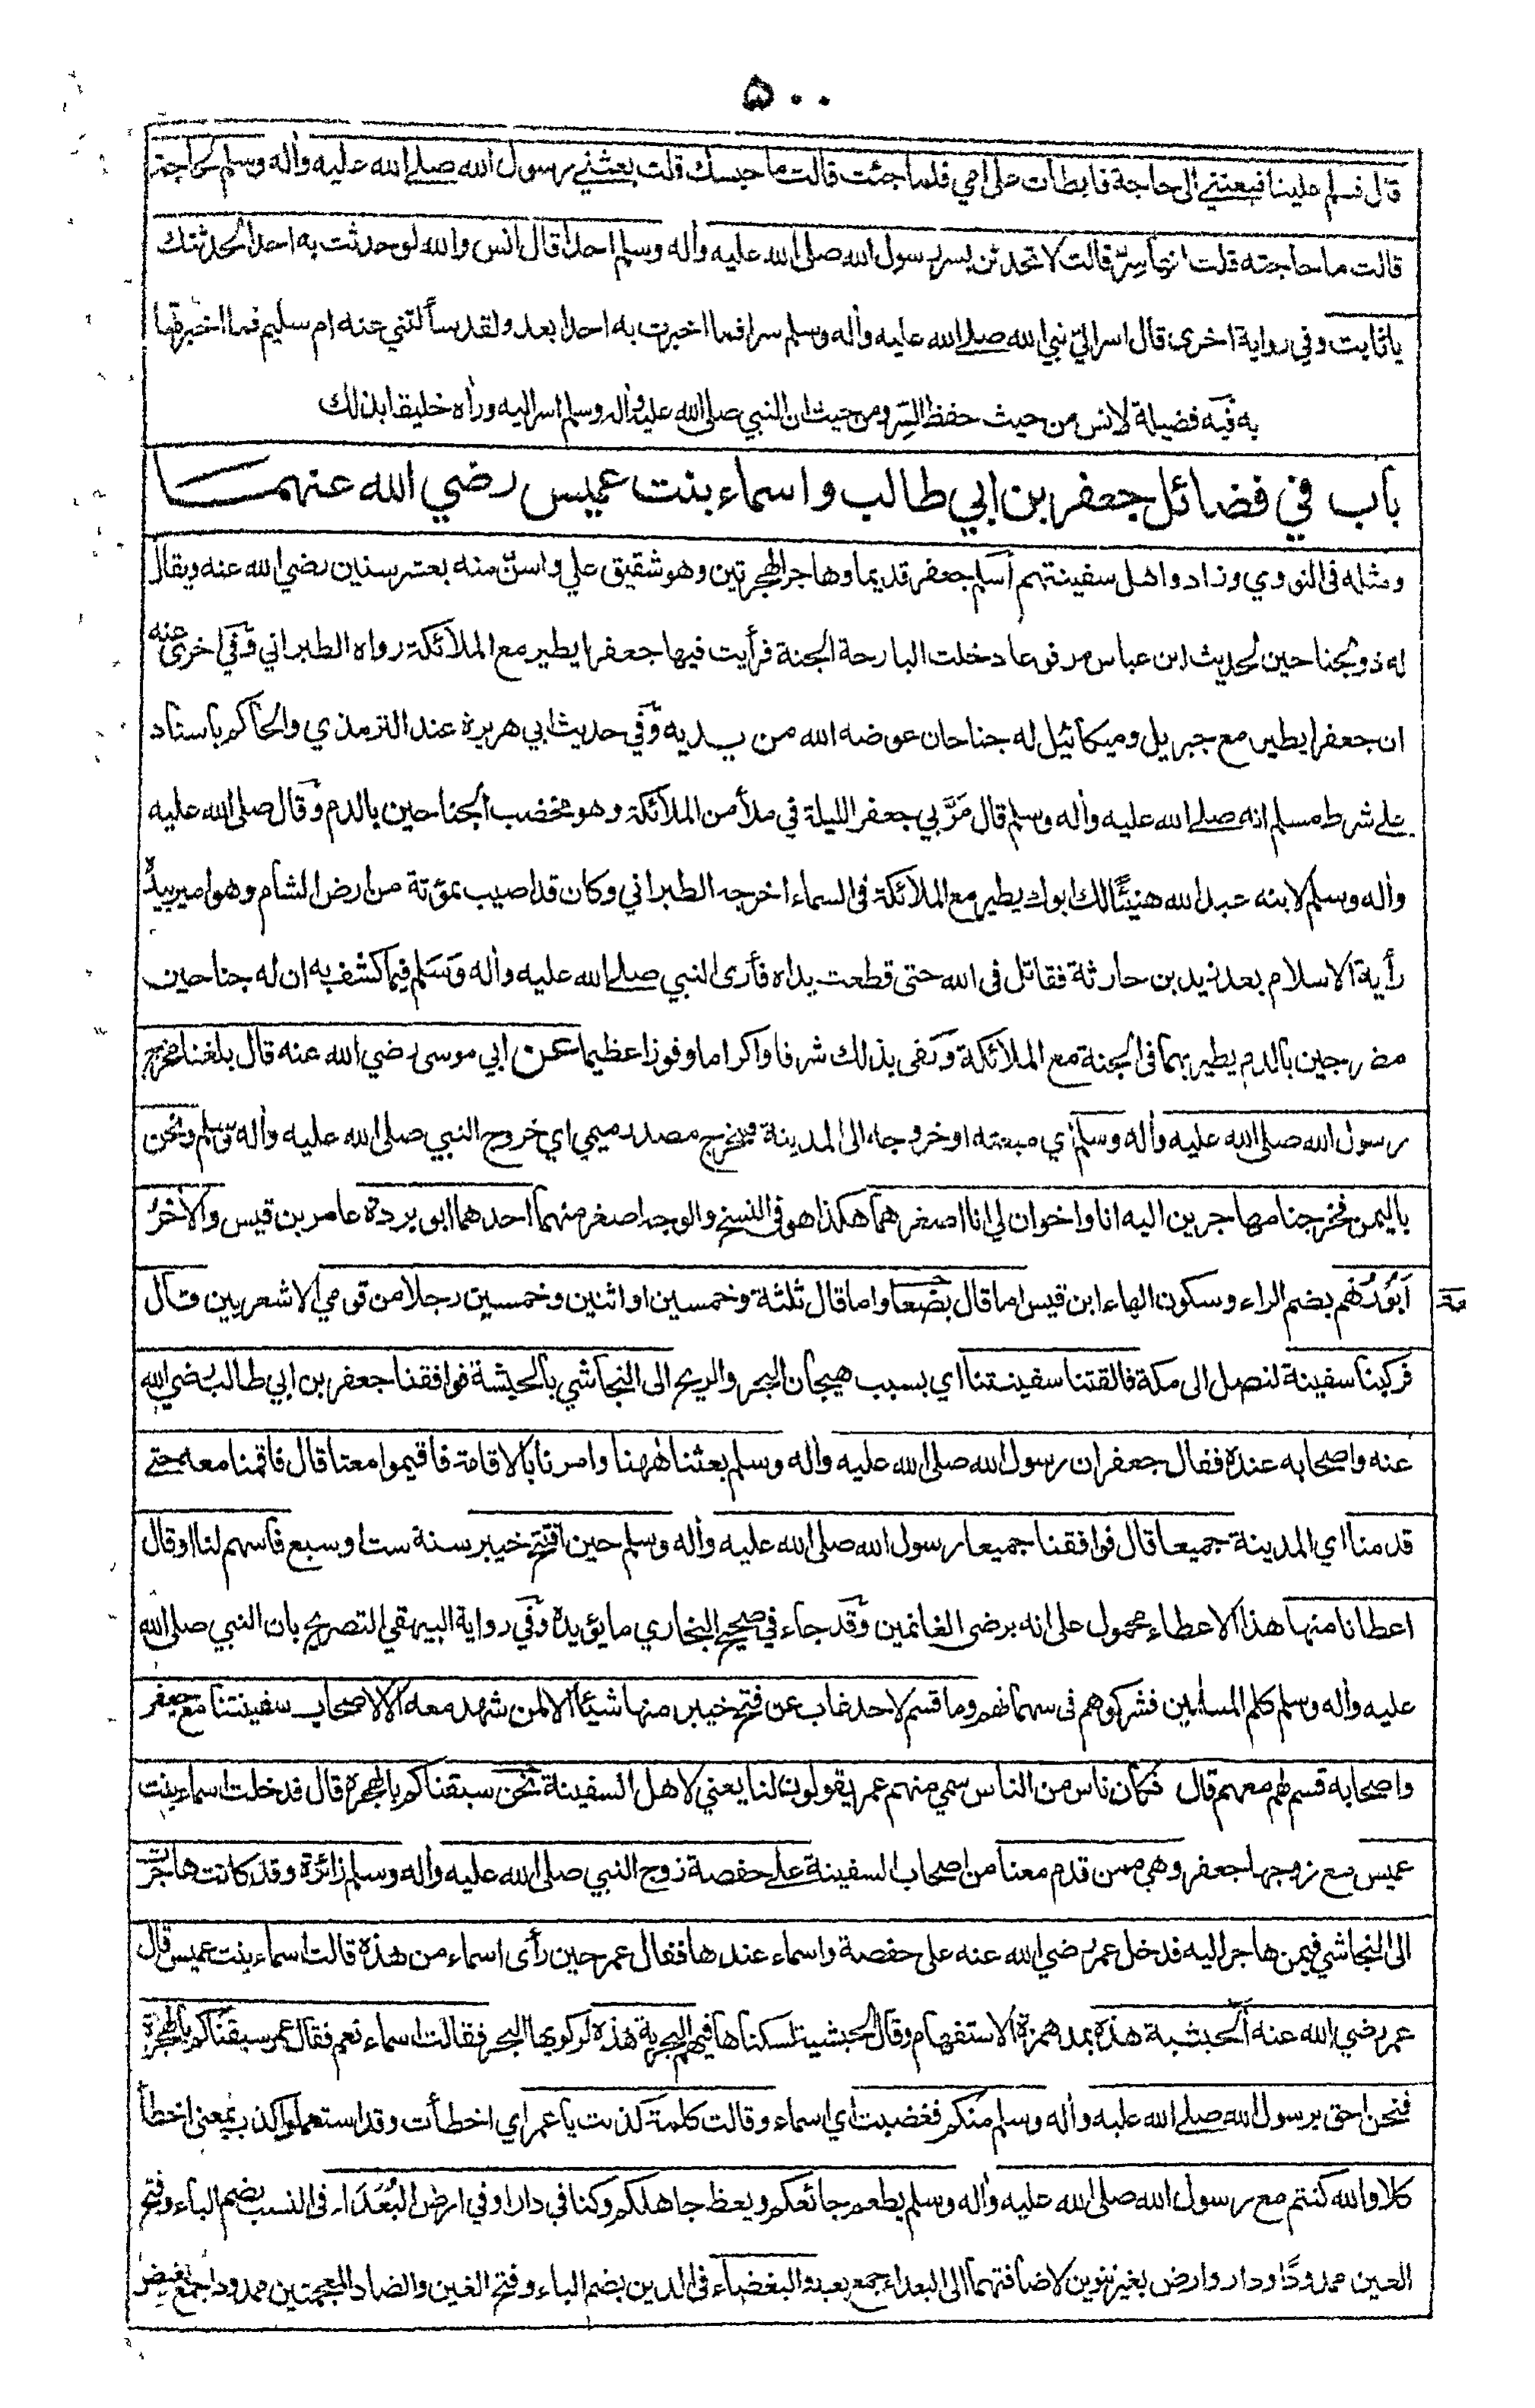 ٥٠٠
قال فسلم علينا فبعثني الى حاجة فابطأت على امي فلما جئت قالت ما حبسك قلت بعثني رسول الله صلى الله عليه وأله وسلم لحاجة
قالت ما حاجته قلت انها سِرّ قالت لا تحدثن بسر رسول الله صلى الله عليه وأله وسلم احدا قال انس والله لو حدثت به احدا لحدثتك
يا ثابت وفي رواية اخرى قال اسر اليّ نبي الله صلى الله عليه وأله وسلم سرا فما اخبرت به احدا بعد ولقد سألتني عنه ام سليم فما اخبرتها
به فيه فضيلة لانس من حيث حفظ السِّر ومن حيث ان النبي صلى الله عليه وأله وسلم اسر اليه ورأه خليقا بذلك
باب في فضائل جعفر بن ابي طالب واسماء بنت عميس رضي الله عنهما
ومثله في النووي وزاد واهل سفينتهم أسلم جعفر قديما وهاجر الهجرتين وهو شقيق علي واسنّ منه بعشر سنين رضي الله عنه ويقال
له ذو الجناحين لحديث ابن عباس مرفوعا دخلت البارحة الجنة فرأيت فيها جعفرا يطير مع الملائكة رواه الطبراني وفي اخرى عنه
ان جعفرا يطير مع جبريل وميكائيل له جناحان عوضه الله من يديه وفي حديث ابي هريرة عند الترمذي والحاكم باسناد
على شرط مسلم انه صلى الله عليه وأله وسلم قال مَرَّ بي جعفر الليلة في ملأ من الملائكة وهو مخضب الجناحين بالدم وقال صلى الله عليه
وأله وسلم لابنه عبد الله هنيئًا لك ابوك يطير مع الملائكة في السماء اخرجه الطبراني وكان قد اصيب بمؤتة من ارض الشام وهو امير بيده
رأية الاسلام بعد زيد بن حارثة فقاتل في الله حتى قطعت يداه فأرى النبي صلى الله عليه وأله وسلم فيما كشف به ان له جناحين
مضرجين بالدم يطير بهما في الجنة مع الملائكة وكفى بذلك شرفا واكراما وفوزا عظيما عن ابي موسى رضي الله عنه قال بلغنا مخرج
رسول الله صلى الله عليه وأله وسلم أي مبعثه او خروجه الى المدينة ومخرج مصدر ميمي اي خروج النبي صلى الله عليه وأله وسلم ونحن
باليمن فخرجنا مهاجرين اليه انا واخوان لي انا اصغرهما هكذا هو في النسخ والوجه اصغر منهما احدهما ابو بردة عامر بن قيس والأخرُ
اَبُو رُهْم بضم الراء وسكون الهاء ابن قيس اما قال بضعا واما قال ثلثة وخمسين او اثنين وخمسين رجلا من قومي الاشعريين قال
فركبنا سفينة لنصل الى مكة فالقتنا سفينتنا اي بسبب هيجان البحر والريح الى النجاشي بالحبشة فوافقنا جعفر بن ابي طالب رضي الله
عنه واصحابه عنده فقال جعفر ان رسول الله صلى الله عليه وأله وسلم بعثنا ههنا وامرنا بالاقامة فاقيموا معنا قال فاقمنا معه حتى
قدمنا اي المدينة جميعا قال فوافقنا جميعا رسول الله صلى الله عليه وأله وسلم حين افتتح خيبر سنة ست او سبع فاسهم لنا او قال
اعطانا منها هذا الاعطاء محمول على انه برضى الغانمين وقد جاء في صحيح البخاري ما يؤيده وفي رواية البيهقي التصريح بان النبي صلى الله
عليه وأله وسلم كلم المسلمين فشركوهم في سهمانهم وما قسم لاحد غاب عن فتح خيبر منها شيئا الا لمن شهد معه الا لاصحاب سفينتنا مع جعفر
واصحابه قسم لهم معهم قال فكان ناس من الناس سمي منهم عمر يقولون لنا يعني لاهل السفينة نحن سبقناكم بالهجرة قال فدخلت اسماء بنت
عميس مع زوجها جعفر وهي ممن قدم معنا من اصحاب السفينة على حفصة زوج النبي صلى الله عليه وأله وسلم زائرة وقد كانت هاجرت
الى النجاشي فيمن هاجر اليه فدخل عمر رضي الله عنه على حفصة واسماء عندها فقال عمر حين رأى اسماء من هذه قالت اسماء بنت عميس قال
عمر رضي الله عنه ألحبشية هذه بمد همزة الاستفهام وقال الحبشية لسكناها فيهم البحرية هذه لركوبها البحر فقالت اسماء نعم فقال عمر سبقناكم بالهجرة
فنحن احق برسول الله صلى الله عليه وأله وسلم منكم فغضبت اي اسماء وقالت كلمة كذبت يا عمر اي اخطأت وقد استعملوا كذب بمعنى اخطأ
كلا والله كنتم مع رسول الله صلى الله عليه وأله وسلم يطعم جائعكم ويعظ جاهلكم وكنا في دار او في ارض البُعَدَاء في النسب بضم الباء وفتح
العين ممدودًا ودار وارض بغير تنوين لاضافتهما الى البعداء جمع بعيد والبغضاء في الدين بضم الباء وفتح الغين والضاد المعجمتين ممدودا جمع بغيض